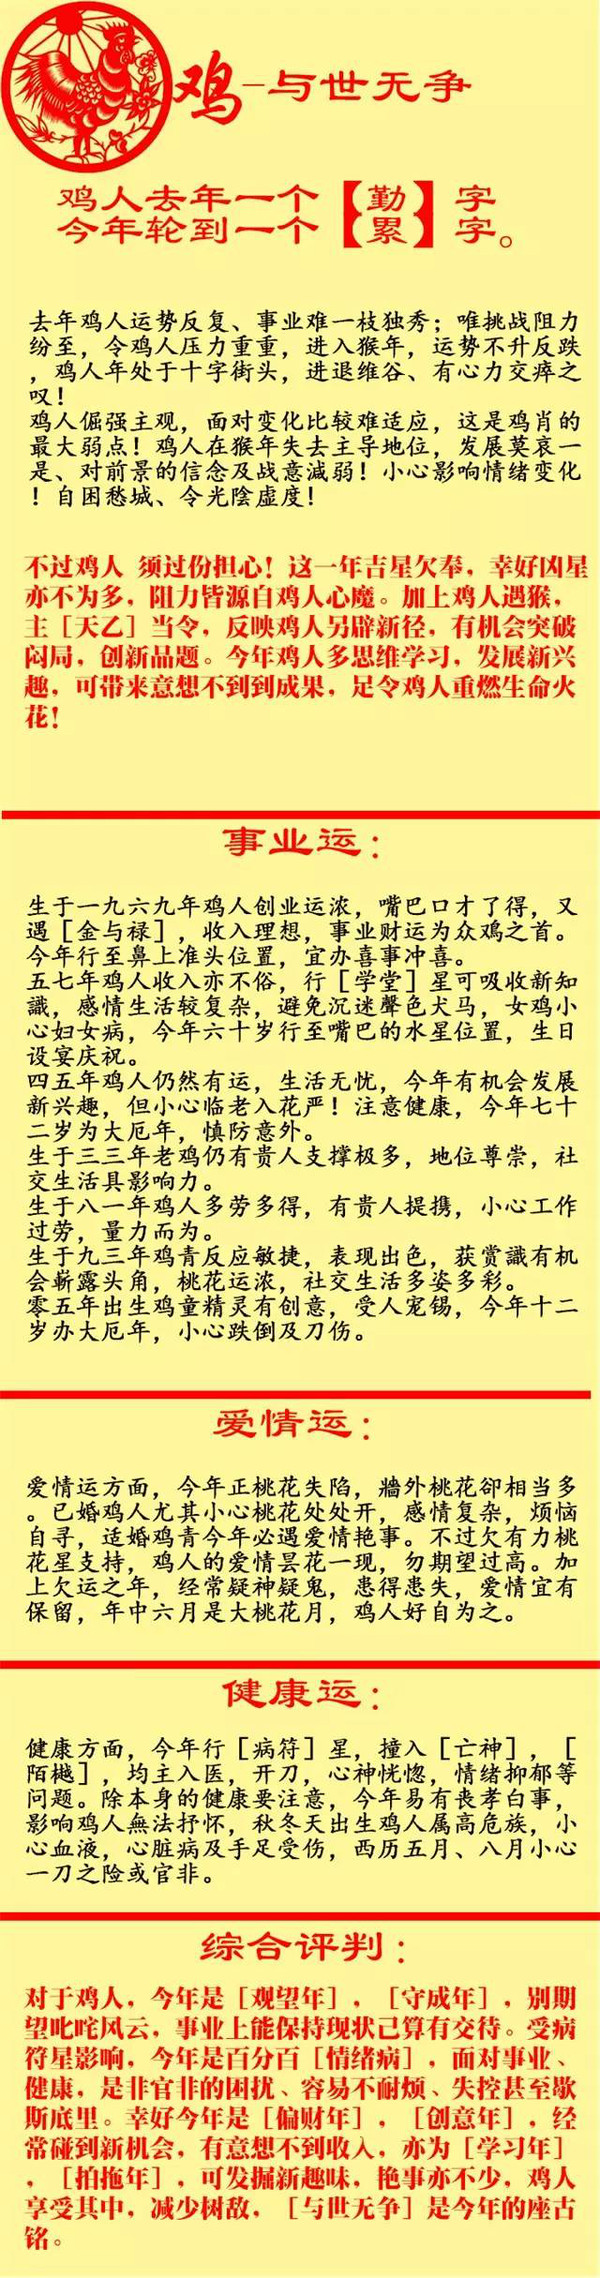 鸡-与世无争
鸡人去年一个【勤】字
今年轮到一个【累】字。
去年鸡人运势反复、事业难一枝独秀；唯挑战阻力
纷至，令鸡人压力重重，进入猴年，运势不升反跌
，鸡人年处于十字街头，进退维谷、有心力交瘁之
叹！
鸡人倔强主观，面对变化比较难适应，这是鸡肖的
最大弱点！鸡人在猴年失去主导地位，发展莫哀一
是、对前景的信念及战意減弱！小心影响情绪变化
！自困愁城、令光陰虚度！
不过鸡人 须过份担心！这一年吉星欠奉，幸好凶星
亦不为多，阻力皆源自鸡人心魔。加上鸡人遇猴，
主［天乙］当令，反映鸡人另辟新径，有机会突破
闷局，创新品题。今年鸡人多思维学习，发展新兴
趣，可带来意想不到到成果，足令鸡人重燃生命火
花！
事业运：
生于一九六九年鸡人创业运浓，嘴巴口才了得，又
遇［金与禄］，收入理想，事业财运为众鳮之首。
今年行至鼻上准头位置，宜办喜事冲喜。
五七年鸡人收入亦不俗，行［学堂］星可吸收新知
識，感情生活较复杂，避免沉迷聲色犬马，女鸡小
心妇女病，今年六十岁行至嘴巴的水星位置，生日
设宴庆祝。
四五年鸡人仍然有运，生活无忧，今年有机会发展
新兴趣，但小心临老入花严！注意健康，今年七十
二岁为大厄年，慎防意外。
生于三三年老鸡仍有贵人支撑极多，地位尊崇，社
交生活具影响力。
生于八一年鸡人多劳多得，有贵人提携，小心工作
过劳，量力而为。
生于九三年鸡青反应敏捷，表现出色，获赏識有机
会崭露头角，桃花运浓，社交生活多姿多彩。
零五年出生鸡童精灵有创意，受人宠锡，今年十二
岁办大厄年，小心跌倒及刀伤。
爱情运：
爱情运方面，今年正桃花失陷，牆外桃花卻相当多
。已婚鸡人尤其小心桃花处处开，感情复杂，烦恼
自寻，适婚鸡青今年必遇爱情艳事。不过欠有力桃
花星支持，鸡人的爱情昙花一现，勿期望过高。加
上欠运之年，经常疑神疑鬼，患得患失，爱情宜有
保留，年中六月是大桃花月，鸡人好自为之。
健康运：
健康方面，今年行［病符］星，撞入［亡神］，［
陌樾］，均主入医，开刀，心神恍惚，情绪抑郁等
问题。除本身的健康要注意，今年易有丧孝白事，
影响鸡人無法抒怀，秋冬天出生鸡人属高危族，小
心血液，心脏病及手足受伤，西历五月、八月小心
一刀之险或官非。
综合评判：
对于鸡人，今年是［观望年］，［守成年］，别期
望叱咤风云，事业上能保持现状己算有交待。受病
符星影响，今年是百分百［情绪病］，面对事业、
健康，是非官非的困扰、容易不耐烦、失控甚至歇
斯底里。幸好今年是［偏财年］，［创意年］，经
常碰到新机会，有意想不到收入，亦为［学习年］
，［拍拖年］，可发掘新趣味，艳事亦不少，鸡人
享受其中，减少树敌，［与世无争］是今年的座古
铭。